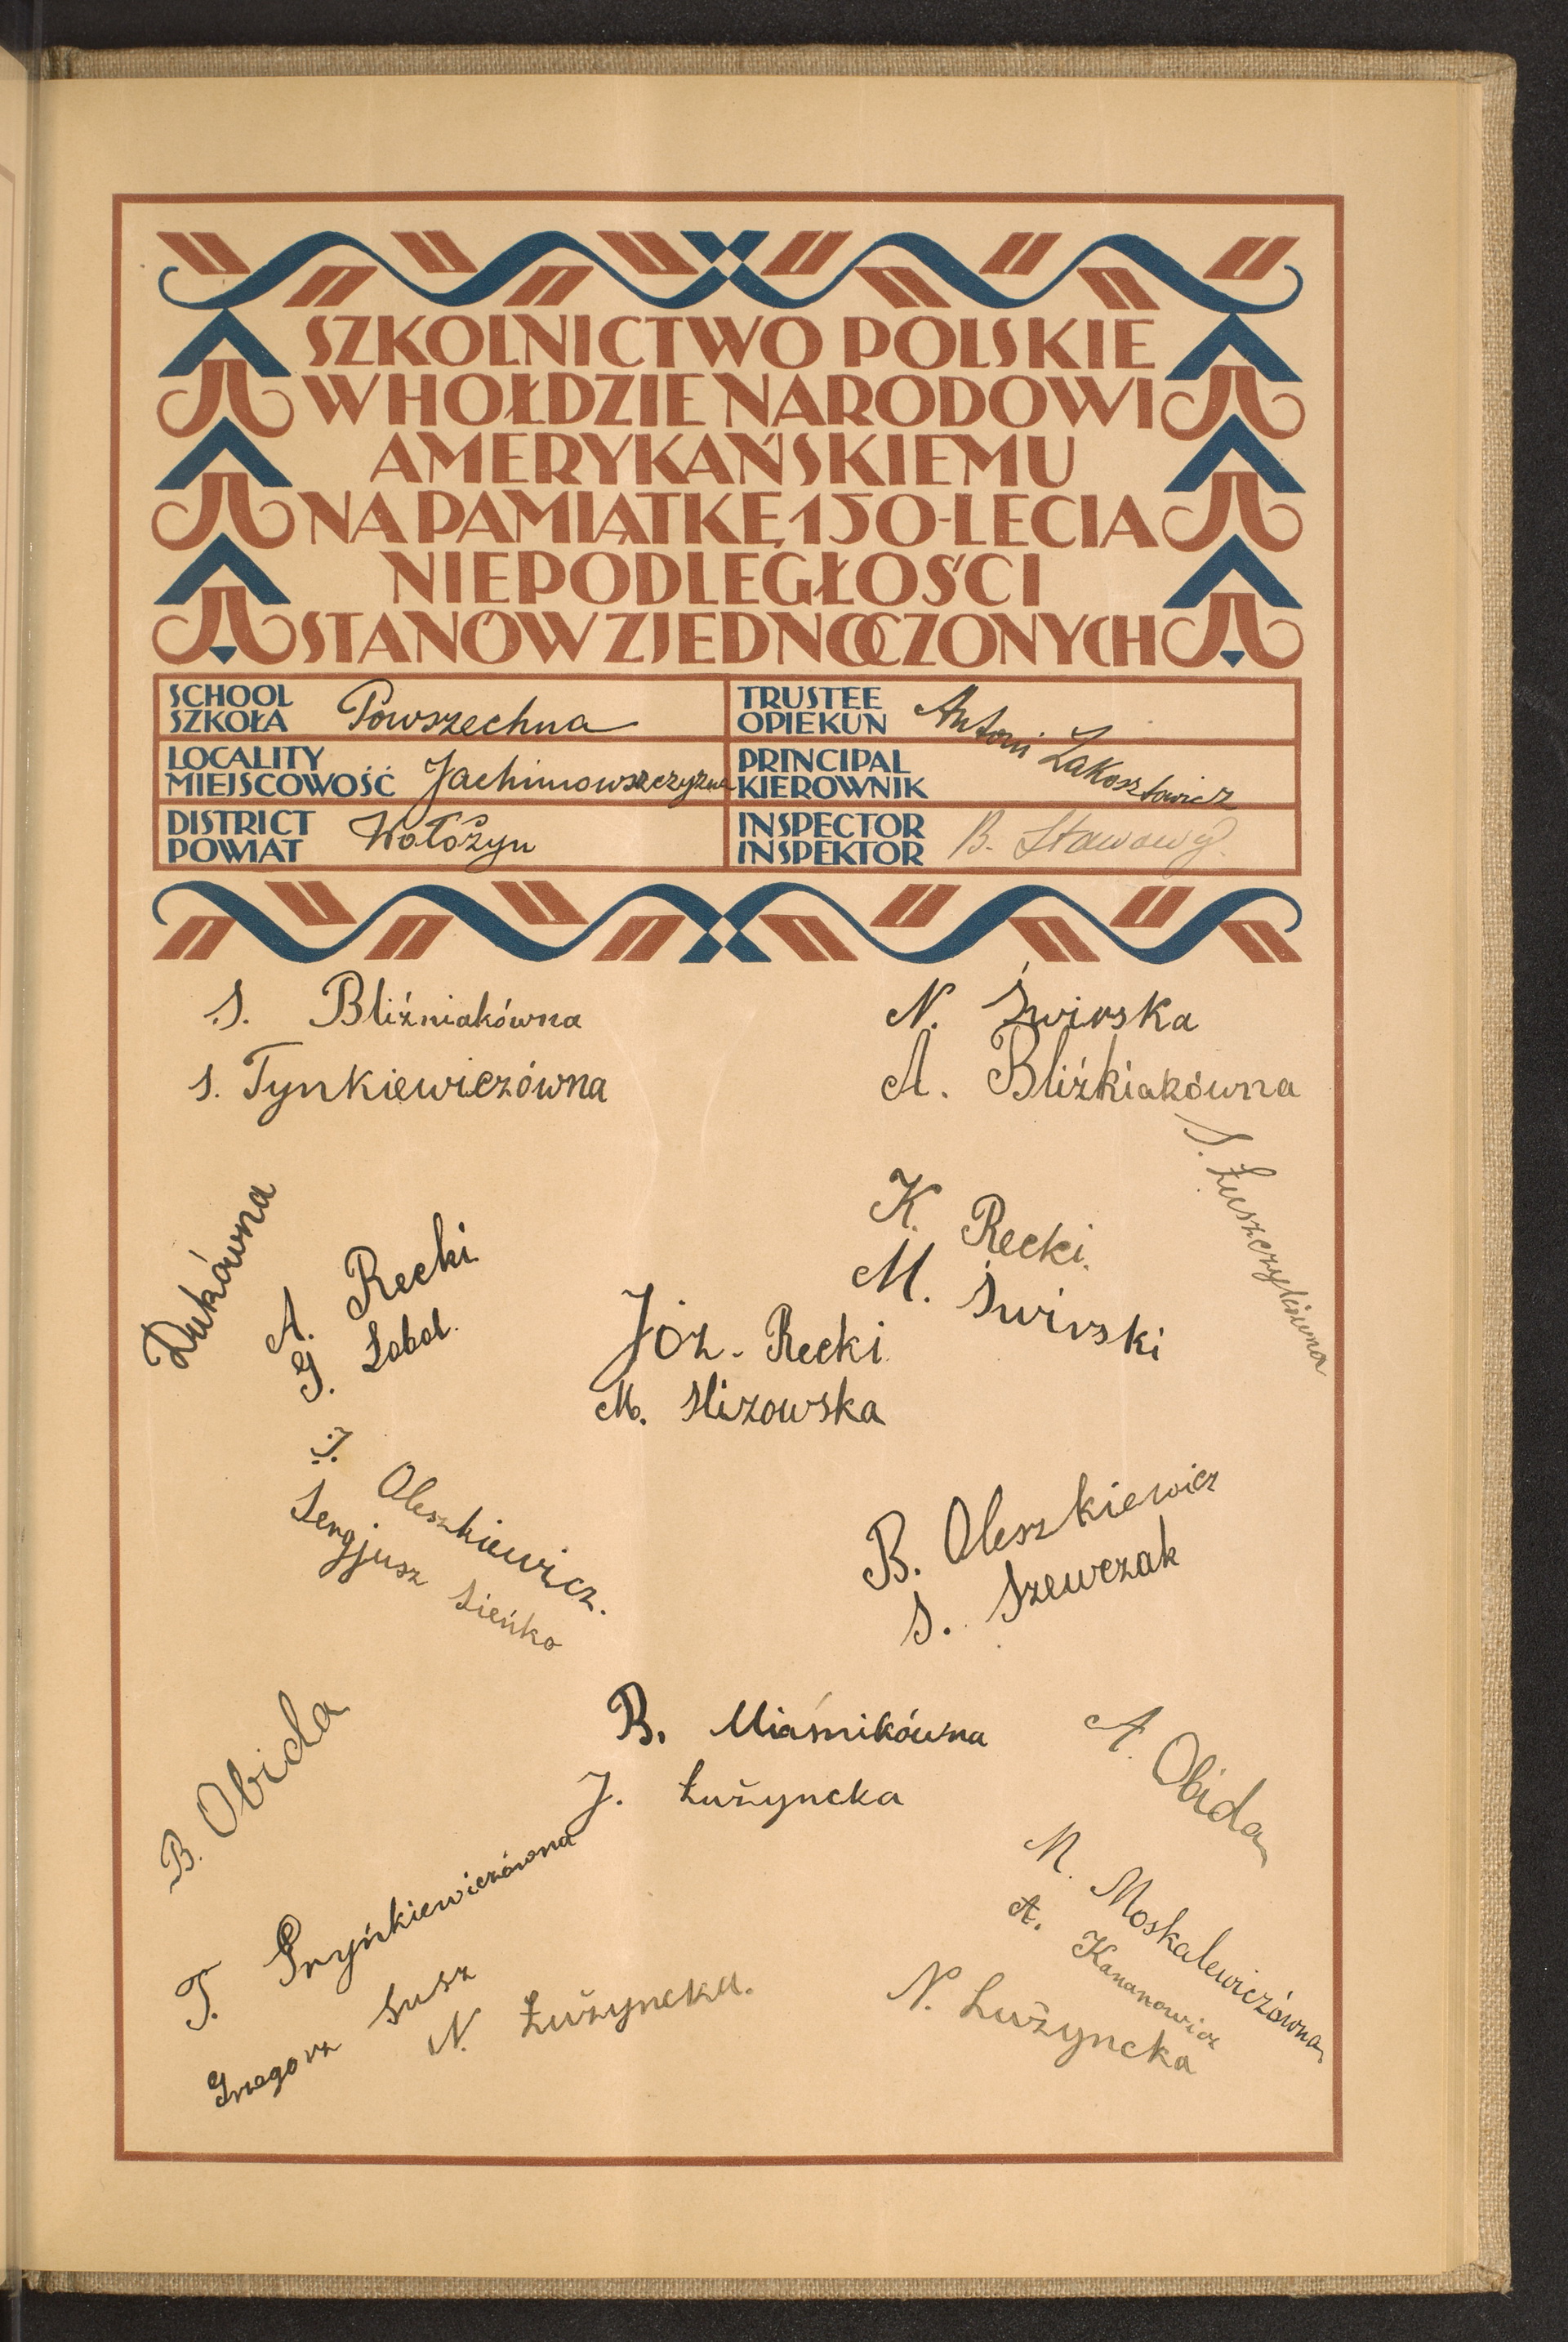 SZKOLNICTWO POLSKIE
W HOŁDZIE NARODOWI
AMERYKAŃSKIEMU
NA PAMIĄTKĘ 150-LECIA
NIEPODLEGŁOŚCI
STANÓW ZJEDNOCZONYCH
SCHOOL
SZKOŁA Powszechna
TRUSTEE
OPIEKUN Antoni Zakosztowicz
LOCALITY
MIEJSCOWOŚĆ Jachimowszczyzna
PRINCIPAL
KIEROWNIK
DISTRICT
POWIAT Wołożyn
INSPECTOR
INSPEKTOR B. Stawowy
S. Bliźniakówna
N. Świrska
S. Tynkiewiczówna
A. Bliźkiakówna
S. Łuszczykówna
Dukówna
A. Recki
G. Łobol.
K. Recki.
M. Świrski
Józ. Recki
M. Slizowska
J. Oleszkiewicz.
Sergjusz Sieńko
B. Oleszkiewicz
S. Szewczak
B. Obida
B. Miaśnikówna
J. Łużyncka
A. Obida
T. Gryńkiewiczówna
M. Moskalewiczówna
A. Kananowicz
Grzegorz Susz
N. Łużyncka.
N. Łużyncka